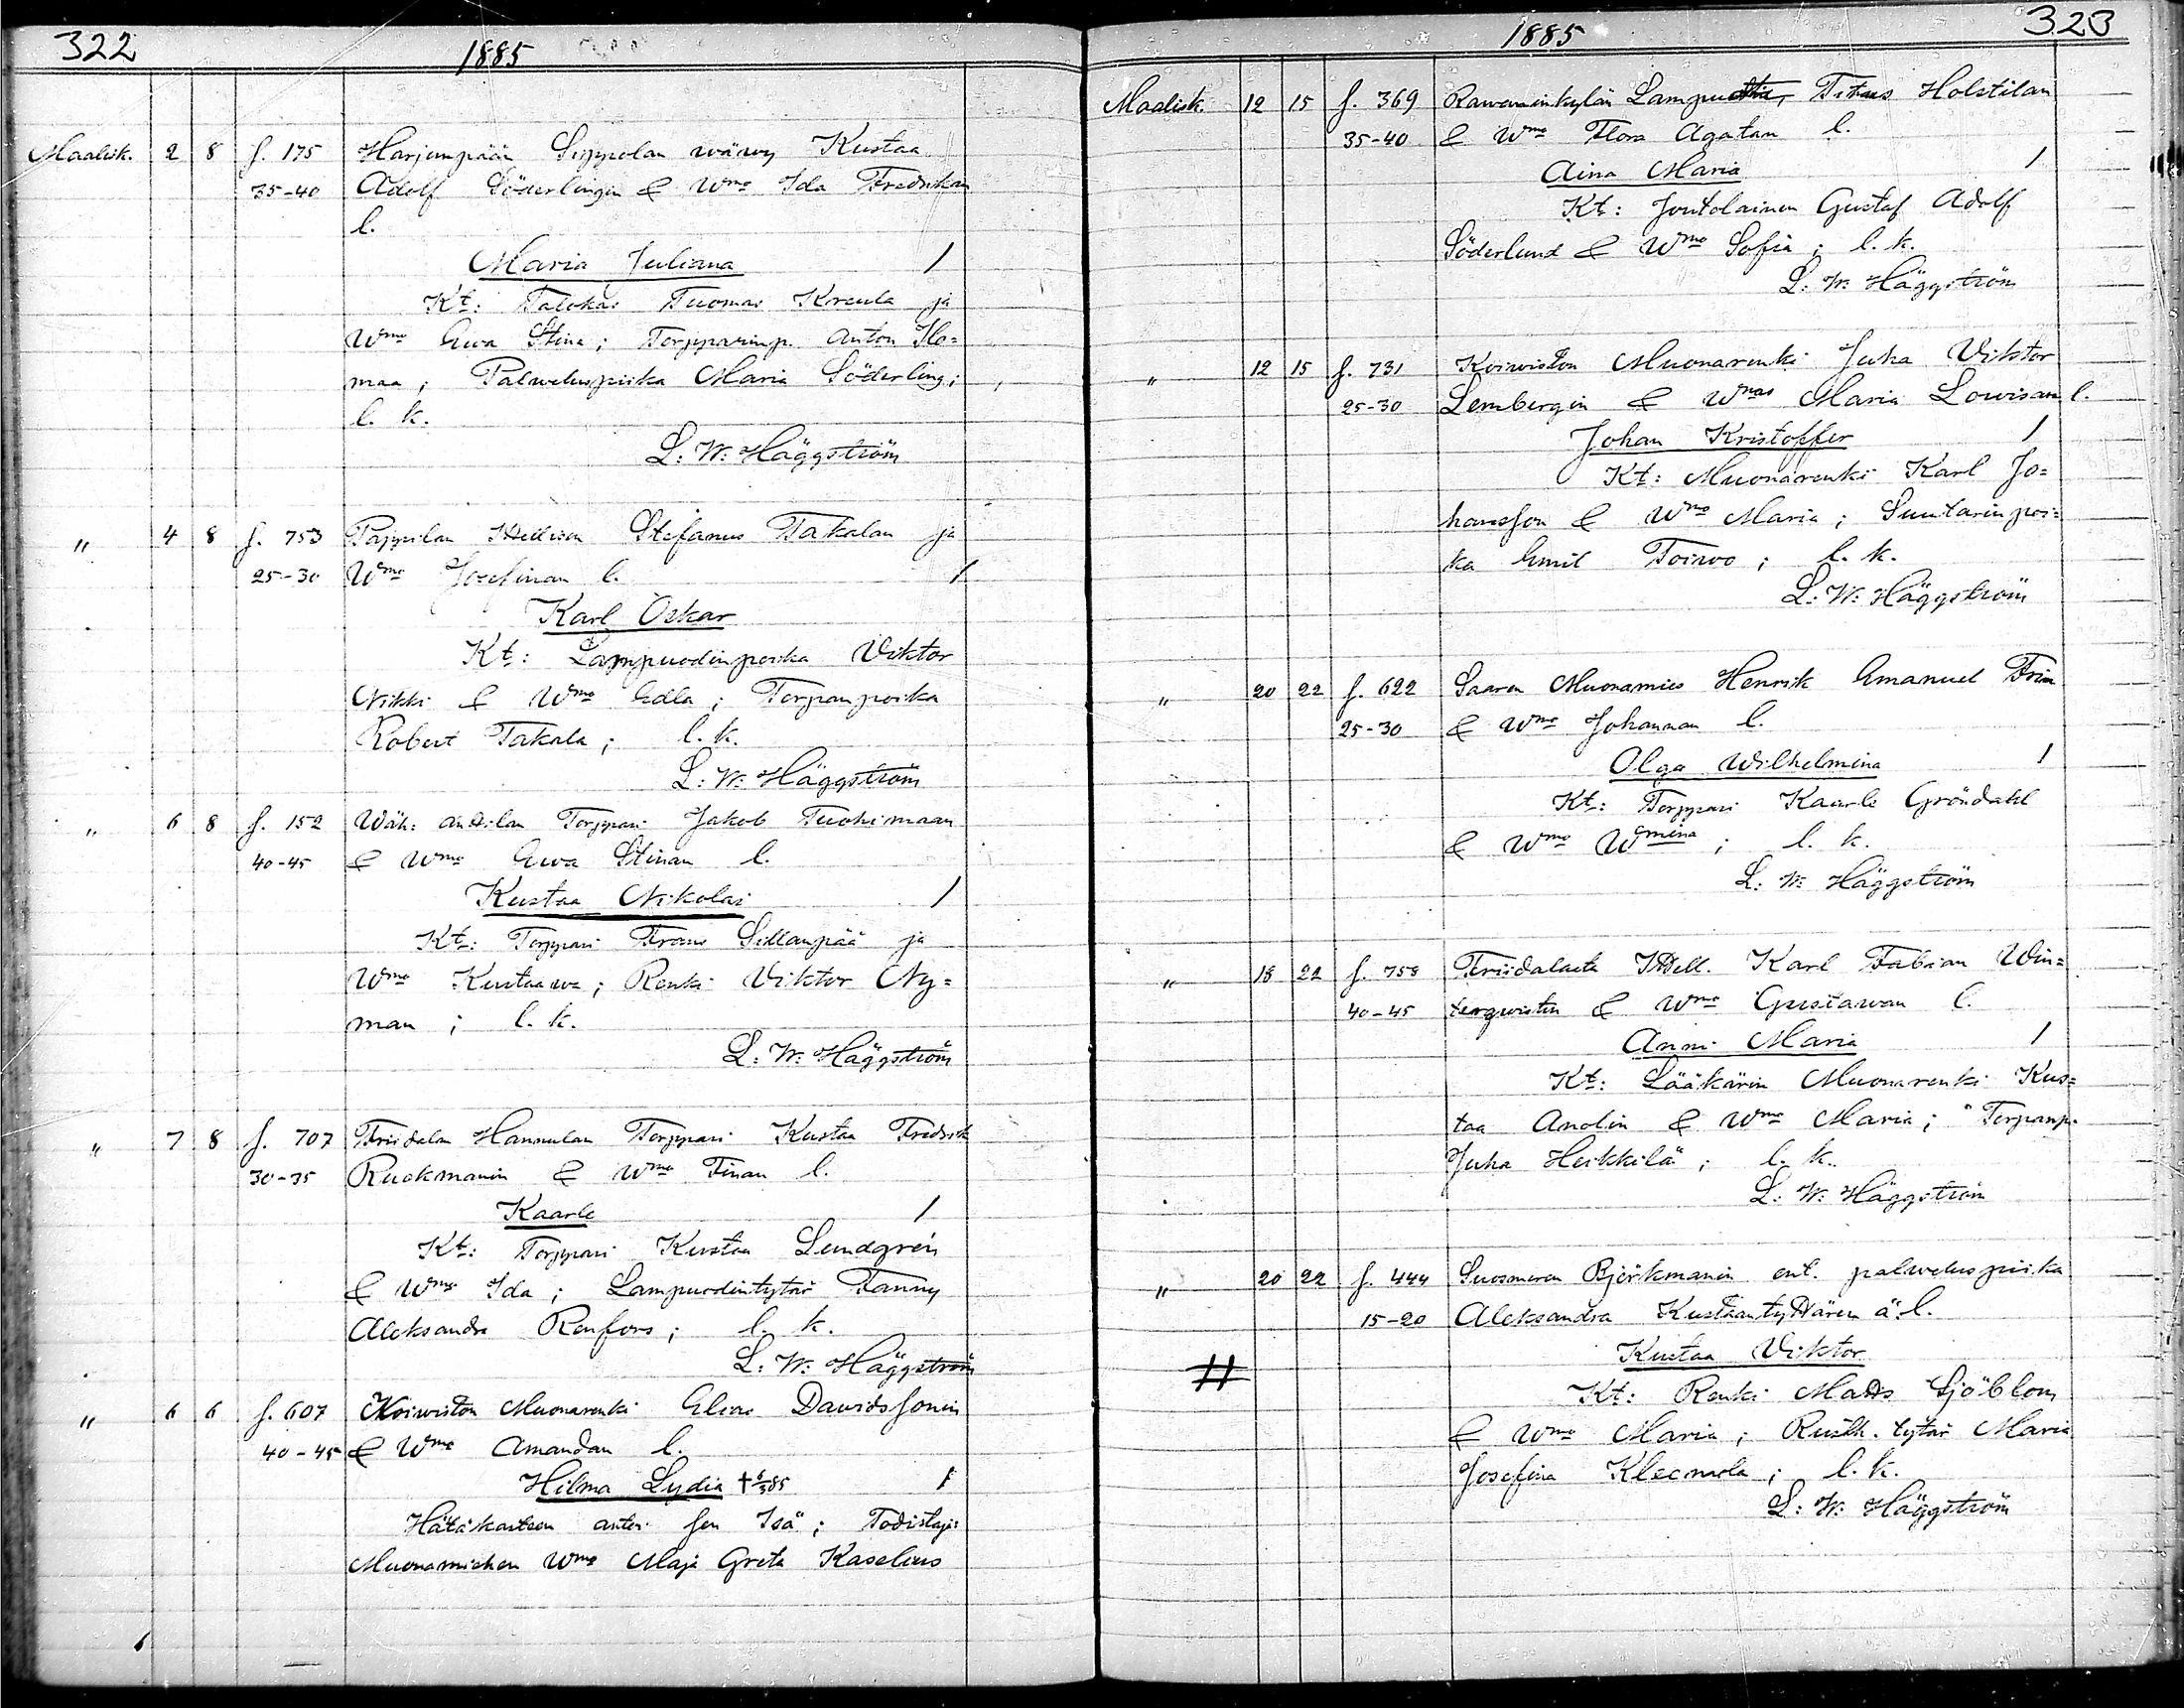 322
1885
Maalisk. 2 8 f. 175 Harjunpään Seppolan wäwy Kustaa
35-40 Adolf Söderlingin & Wmo Ida Fredrikan
l.
Maria Juliana /
Kt: Talokas Tuomas Kreula ja
Wmo Ewa Stina; Torpparinp. Anton Ilo=
maa; Palweluspiika Maria Söderling;
l. k.
L: W: Häggström
" 4 8 f. 753 Pappilan Itsellisen Stefanus Takalan ja
25-30 Wmo Josefinan l. /
Karl Oskar
Kt: Lampuodinpoika Viktor
Nikki & Wmo Edla; Torpanpoika
Robert Takala; l. k.
L: W: Häggström
" 6 8 f. 152 Wäh: Anttilan Torppari Jakob Tuohimaan
40-45 & Wmo Ewa Stinan l.
Kustaa Nikolai /
Kt: Torppari Frans Sillanpää ja
Wmo Kustaawa; Renki Viktor Ny=
man; l. k.
L: W: Häggström
" 7 8 f. 707 Friidalan Hannulan Torppari Kustaa Fredrik
30-35 Ruckmanin & Wmo Finan l.
Kaarle /
Kt: Torppari Kustaa Lundgrén
& Wmo Ida; Lampuodintytär Fanny
Aleksandra Renfors; l. k.
L: W: Häggström
" 6 6 f. 607 Koiwiston Muonarenki Elias Davidssonin
40-45 & Wmo Amandan l.
Hilma Lydia † 6/3 85 /
Hätäkasteen antoi sen Isä; Todistaja:
Muonamiehen Wmo Maja Greta Kaselius
1885
323
Maalisk. 12 15 f. 369 Rawaninkylän Titus Holstilan
35-40 & Wmo Flora Agatan l.
Aina Maria /
Kt: Joutolainen Gustaf Adolf
Söderlund & Wmo Sofia; l. k.
L: W: Häggström
" 12 15 f. 731 Koiwiston Muonarenki Juha Viktor
25-30 Lembergin & Wmas Maria Lowisan l.
Johan Kristoffer /
Kt: Muonarenki Karl Jo=
hansson & Wmo Maria; Suutarinpoi=
ka Emil Toiwo; l. k.
L: W: Häggström
" 20 22 f. 622 Saaren Muonamies Henrik Emanuel
25-30 & Wmo Johannan l.
Olga Wilhelmina /
Kt: Torppari Kaarle Gröndahl
& Wmo Wmina; l. k.
L: W: Häggström
" 18 22 f. 758 Friidalasta Itsell. Karl Fabian Win=
40-45 terqwistin & Wmo Gustawan l.
Anni Maria /
Kt: Lääkärin Muonarenki Kus=
taa Anolin & Wmo Maria; Torpanp.
Juha Heikkilä; l. k.
L: W: Häggström
" 20 22 f. 444 Suosmeren Björkmanin ent. palweluspiika
15-20 Aleksandra Kustaantyttären ä: l.
Kustaa Viktor
Kt: Renki Matts Sjöblom
& Wmo Maria; Rusth. tytär Maria
Josefina Kleemola; l. k.
L: W: Häggström